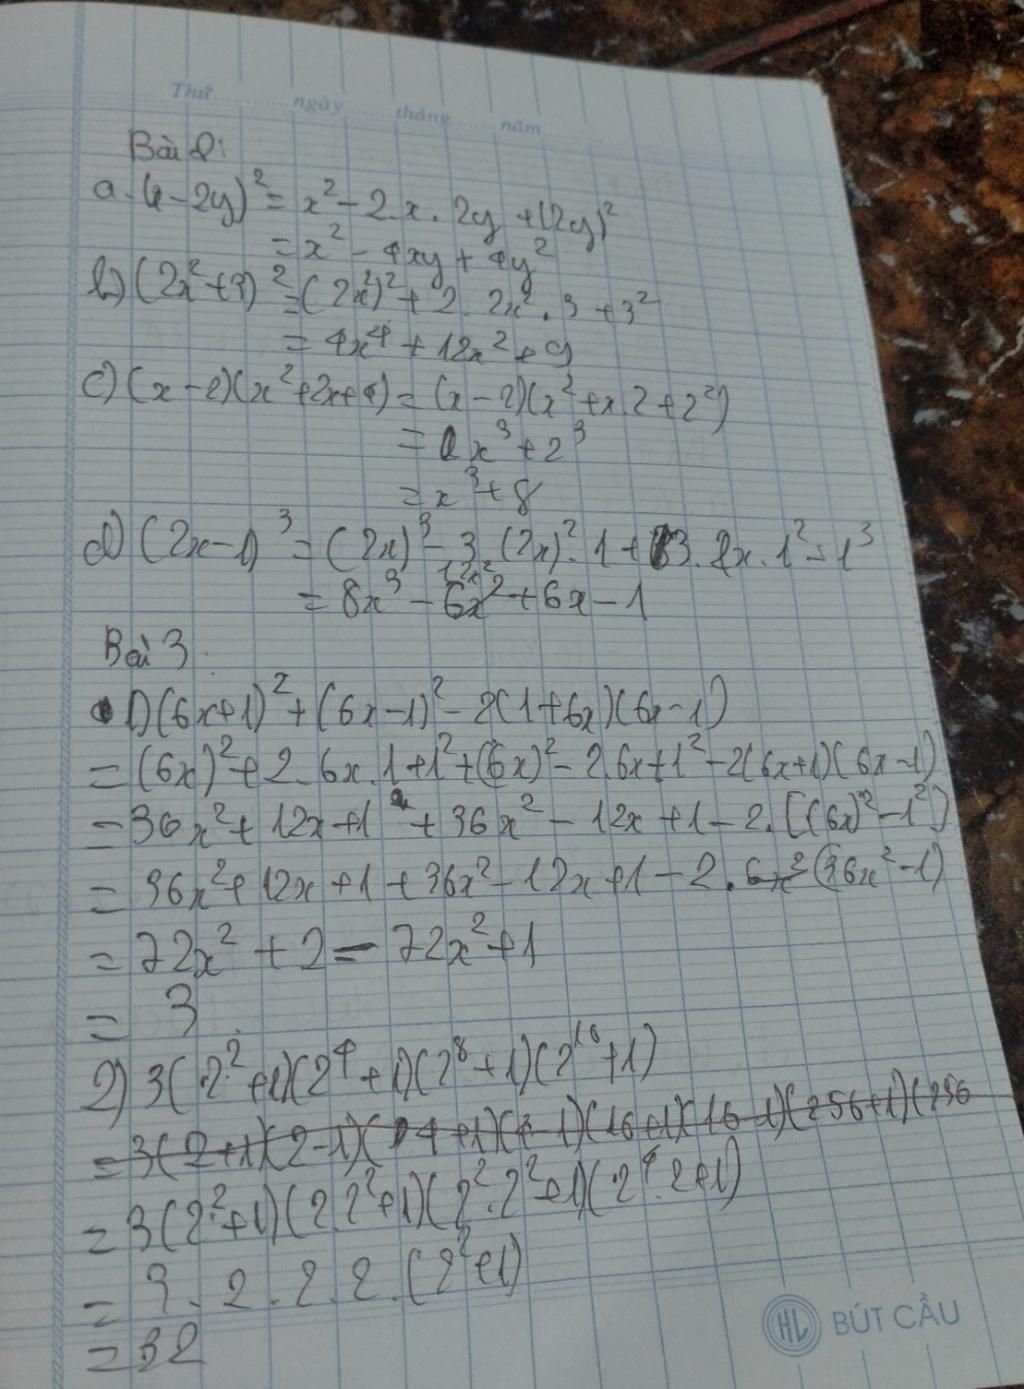 Thứ ngày tháng năm
Bài 2:
a. (x - 2y)² = x² - 2.x.2y + (2y)²
= x² - 4xy + 4y²
b) (2x² + 3)² = (2x²)² + 2. 2x². 3 + 3²
= 4x⁴ + 12x² + 9
c) (x - 2)(x² + 2x + 4) = (x - 2)(x² + x.2 + 2²)
= x³ + 2³
= x³ + 8
d) (2x - 1)³ = (2x)³ - 3.(2x)².1 + 3.2x.1² - 1³
12x²
= 8x³ - 6x² + 6x - 1
Bài 3
1) (6x+1)² + (6x-1)² - 2(1+6x)(6x-1)
= (6x)² + 2.6x.1 + 1² + (6x)² - 2.6x + 1² - 2(6x+1)(6x-1)
= 36x² + 12x + 1 + 36x² - 12x + 1 - 2.[(6x)² - 1²]
= 36x² + 12x + 1 + 36x² - 12x + 1 - 2. 6x² (36x² - 1)
= 72x² + 2 - 72x² + 1
= 3
2) 3(2² + 1)(2⁴ + 1)(2⁸ + 1)(2¹⁶ + 1)
= 3(2+1)(2-1)(4+1)(4-1)(16+1)(16-1)(256+1)(256
= 3(2² + 1)(2.2² + 1)(2².2² + 1)(2⁴.2+1)
= 3. 2. 2. 2. (2² + 1)
= 32
HL BÚT CẦU